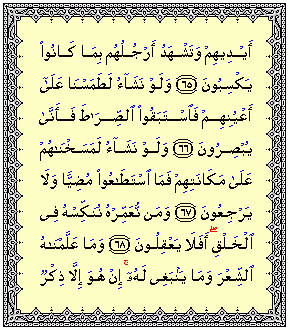 أَيۡدِيهِمۡ وَتَشۡهَدُ أَرۡجُلُهُم بِمَا كَانُواْ
يَكۡسِبُونَ ٦٥ وَلَوۡ نَشَآءُ لَطَمَسۡنَا عَلَىٰٓ
أَعۡيُنِهِمۡ فَٱسۡتَبَقُواْ ٱلصِّرَٰطَ فَأَنَّىٰ
يُبۡصِرُونَ ٦٦ وَلَوۡ نَشَآءُ لَمَسَخۡنَٰهُمۡ
عَلَىٰ مَكَانَتِهِمۡ فَمَا ٱسۡتَطَٰعُواْ مُضِيّٗا وَلَا
يَرۡجِعُونَ ٦٧ وَمَن نُّعَمِّرۡهُ نُنَكِّسۡهُ فِي
ٱلۡخَلۡقِۚ أَفَلَا يَعۡقِلُونَ ٦٨ وَمَا عَلَّمۡنَٰهُ
ٱلشِّعۡرَ وَمَا يَنۢبَغِي لَهُۥٓۚ إِنۡ هُوَ إِلَّا ذِكۡرٞ